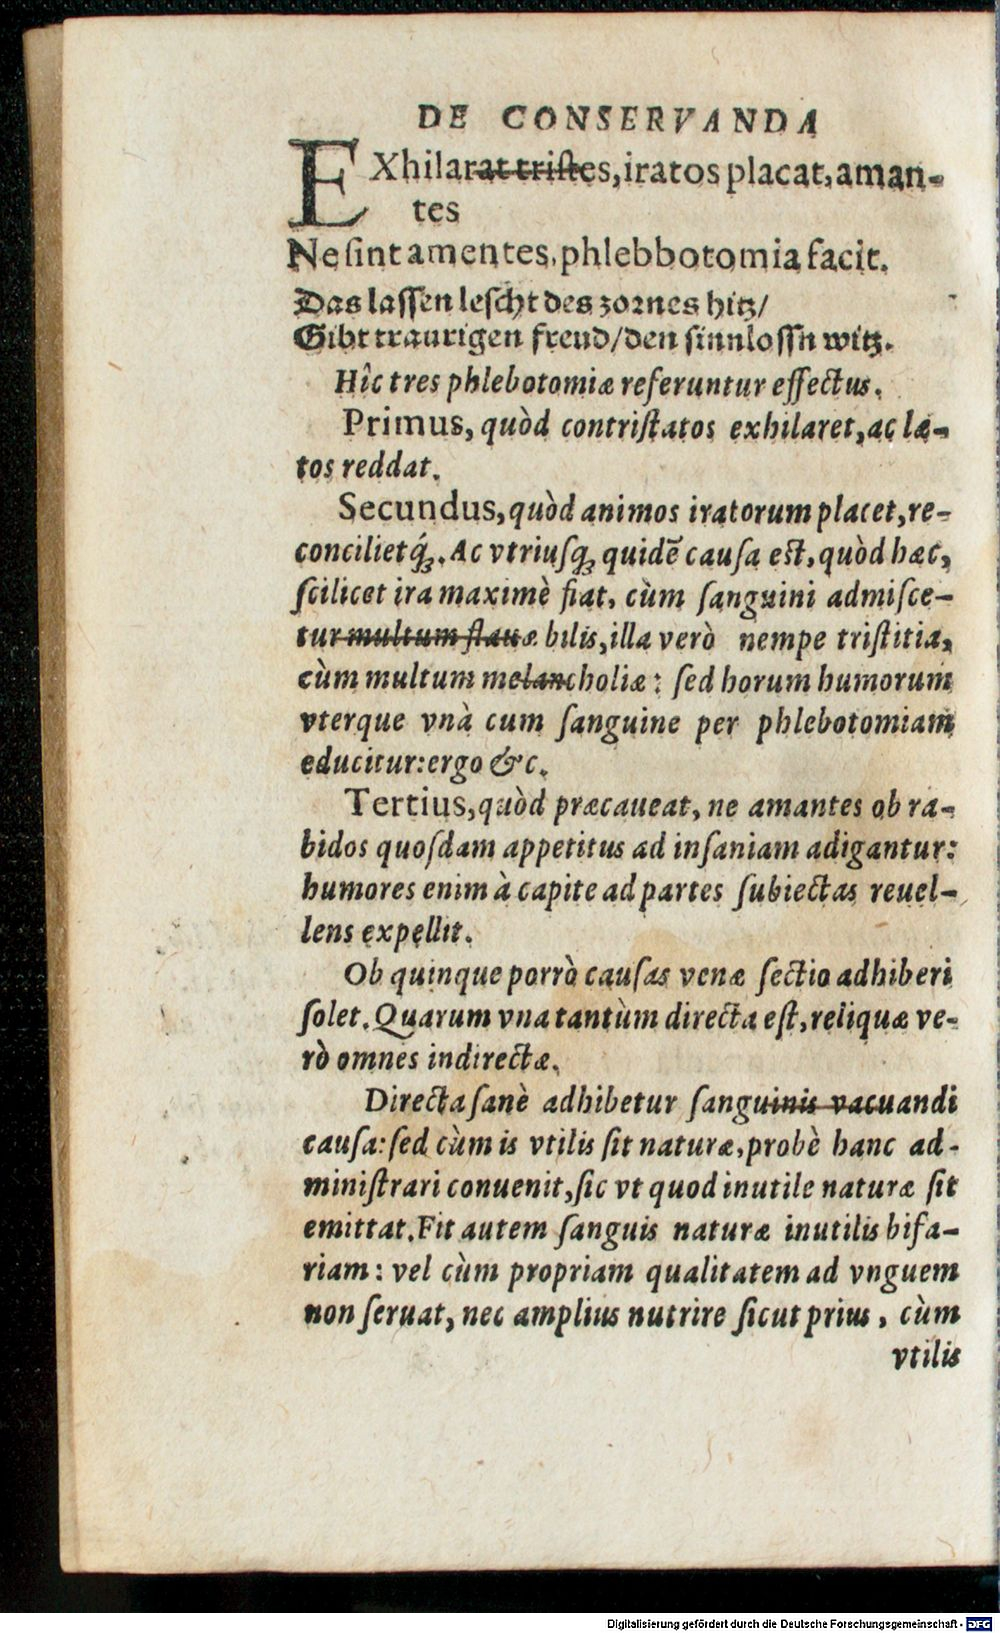 DE CONSERVANDA
EXhilarat tristes, iratos placat, aman-
tes
Ne sint amentes, phlebbotomia facit.
Das lassen lescht des zornes hitz/
Gibt traurigen freud/den sinnlossn witz.
Hîc tres phlebotomiæ referuntur effectus.
Primus, quòd contristatos exhilaret, ac læ-
tos reddat.
Secundus, quòd animos iratorum placet, re-
concilietq́;. Ac vtriusq; quidē causa est, quòd hæc,
scilicet ira maximè fiat, cùm sanguini admisce-
tur multum flauæ bilis, illa verò nempe tristitia,
cùm multum melancholiæ: sed horum humorum
vterque vnà cum sanguine per phlebotomiam
educitur: ergo &c.
Tertius, quòd præcaueat, ne amantes ob ra-
bidos quosdam appetitus ad insaniam adigantur:
humores enim à capite ad partes subiectas reuel-
lens expellit.
Ob quinque porrò causas venæ sectio adhiberi
solet. Quarum vna tantùm directa est, reliquæ ve-
rò omnes indirectæ.
Directa sanè adhibetur sanguinis vacuandi
causa: sed cùm is vtilis sit naturæ, probè hanc ad-
ministrari conuenit, sic vt quod inutile naturæ sit
emittat. Fit autem sanguis naturæ inutilis bifa-
riam: vel cùm propriam qualitatem ad vnguem
non seruat, nec amplius nutrire sicut prius, cùm
vtilis
Digitalisierung gefördert durch die Deutsche Forschungsgemeinschaft - DFG